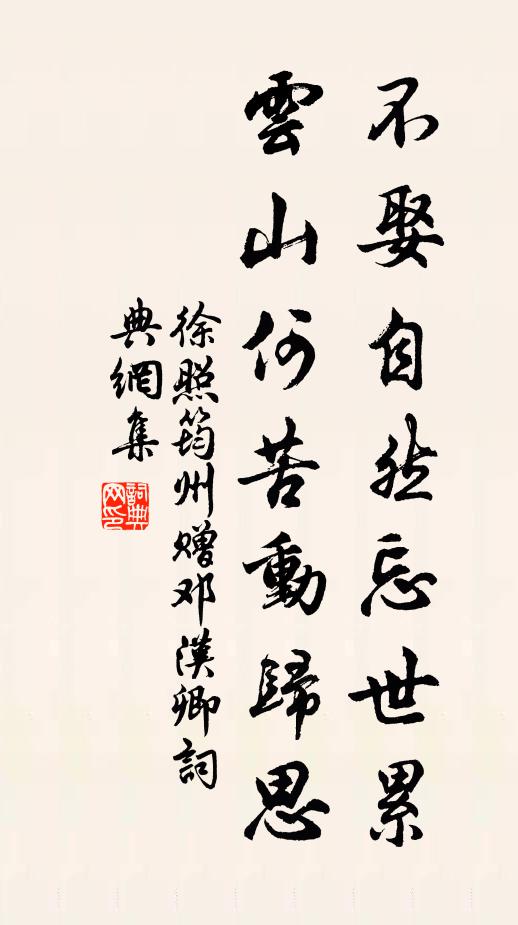 不娶自然忘世累
雲山何苦動歸思
徐照筠州赠邓漢卿詞
典網集
詞典网印